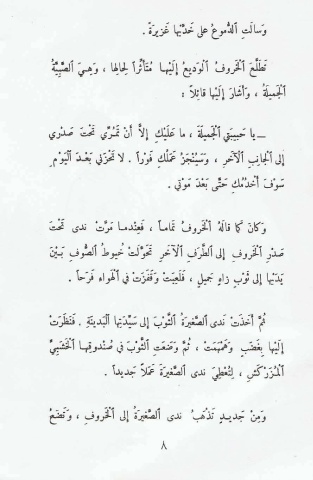 وَسالَتِ ٱلدُّموعُ على خَدَّيْها غَزيرَةً .
فَتَطَلَّعَ ٱلخَروفُ ٱلوَديعُ إِلَيْهـا مُتَأَثِّراً لِحالِها ، وَهِـيَ ٱلصَّبِيَّةُ
ٱلجَميلَةُ ، وَأَشارَ إِلَيْها قائِلاً :
ــ يا حَبيبَتي ٱلجَميلَةَ ، ما عَلَيْكِ إِلاَّ أَنْ تَمُرِّي تَحْتَ صَدْري
إِلى ٱلجانِبِ ٱلآخَرِ ، وَسَيُنْجَزُ عَمَلُكِ فَوْراً . لا تَحْزَني بَعْـدَ ٱليَوْمِ ،
سَوْفَ أَخْدُمُكِ حَتَّى بَعْدَ مَوْتي .
وَكانَ كَما قالَهُ ٱلخَروفُ تَماماً ، فَعِنْدَما مَرَّتْ ندى تَحْتَ
صَدْرِ ٱلخَروفِ إِلى ٱلطَّرَفِ ٱلآخَرِ تَحَوَّلَتْ خُيوطُ ٱلصُّوفِ بَيْنَ
يَدَيْها إِلى ثَوْبٍ زاهٍ جَميلٍ ، فَلَعِبَتْ وَقَفَزَتْ في ٱلهَواءِ فَرَحاً .
ثُمَّ أَخَذَتْ ندى ٱلصَّغيرَةُ ٱلثَّوْبَ إِلى سَيِّدَتِها ٱلبَدينَةِ . فَنَظَرَتْ
إِلَيْها بِغَضَبٍ وَهَمْهَمَتْ ، ثُمَّ وَضَعَتِ ٱلثَّوْبَ في صُنْدوقِهـا ٱلخَشَبِيِّ
ٱلمُزَرْكَشِ ، لِتُعْطِيَ ندى ٱلصَّغيرَةَ عَمَلاً جَديداً .
وَمِنْ جَديـدٍ تَذْهَبُ ندى ٱلصَّغيرَةُ إِلى ٱلخَروفِ ، وَتَضَعُ
٨